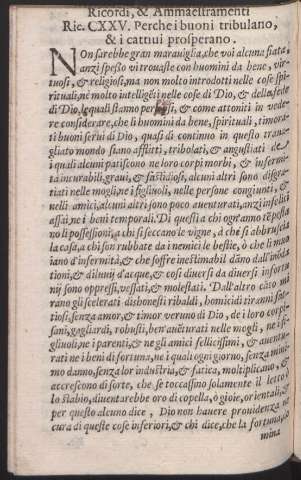 Ricordi, & Ammaestramenti
Ric. CXXV. Perche i buoni tribulano,
& i cattiui prosperano.
NOn sarebbe gran marauiglia, che voi alcuna fiata,
anzi spesso vi trouaste con huomini da bene, vir-
tuosi, & religiosi, ma non molto introdotti nelle cose spi-
rituali, nè molto intelligẽti nelle cose di Dio, & della fede
di Dio, le quali stanno & come attoniti in vede-
re considerare, che li huomini da bene, spirituali, timora-
ti buoni serui di Dio, quasi di continuo in questo traua-
gliato mondo siano afflitti, tribolati, & angustiati de
i quali alcuni patiscono ne loro corpi morbi, & infermi-
tà incurabili, graui, & fastidiosi, alcuni altri sono disgra-
tiati nelle mogli, ne i figliuoli, nelle persone congiunti, &
nelli amici, alcuni altri sono poco auenturati, anzi infelici
assai, ne i beni temporali. Di questi a chi ogn'anno tẽpesta
no li possessioni, a chi si seccano le vigne, a chi si abbruscia
la casa, a chi son rubbate da i nemici le bestie, ò che li muo
iano d'infermità, & che soffre inestimabil dãno dall'inõda
tioni, & dilunij d'acque, & così diuersi da diuersi infortu
nij sono oppressi, vessati, & molestati. Dall'altro cãto mi
rano gli scelerati disbonesti ribaldi, homicidi tiranni fat-
tiosi, senza amor, & timor veruno di Dio, de i loro corpi
sani, gagliardi, robusti, ben auẽturati nelle mogli, ne i fi-
gliuoli, ne i parenti, & ne gli amici felicissimi, & auentu-
rati ne i beni di fortuna, ne i quali ogni giorno, senza mini-
mo danno, senza lor industria, & fatica, moltiplicano, &
accrescono di sorte, che se toccassino solamente il letto,
lo stabio, diuentarebbe oro di copella, ò gioie, orientali, &
per questo alcuno dice, Dio non hauere prouidenza nè
cura di queste cose inferiori, & chi dice, che la fortuna, 
mina